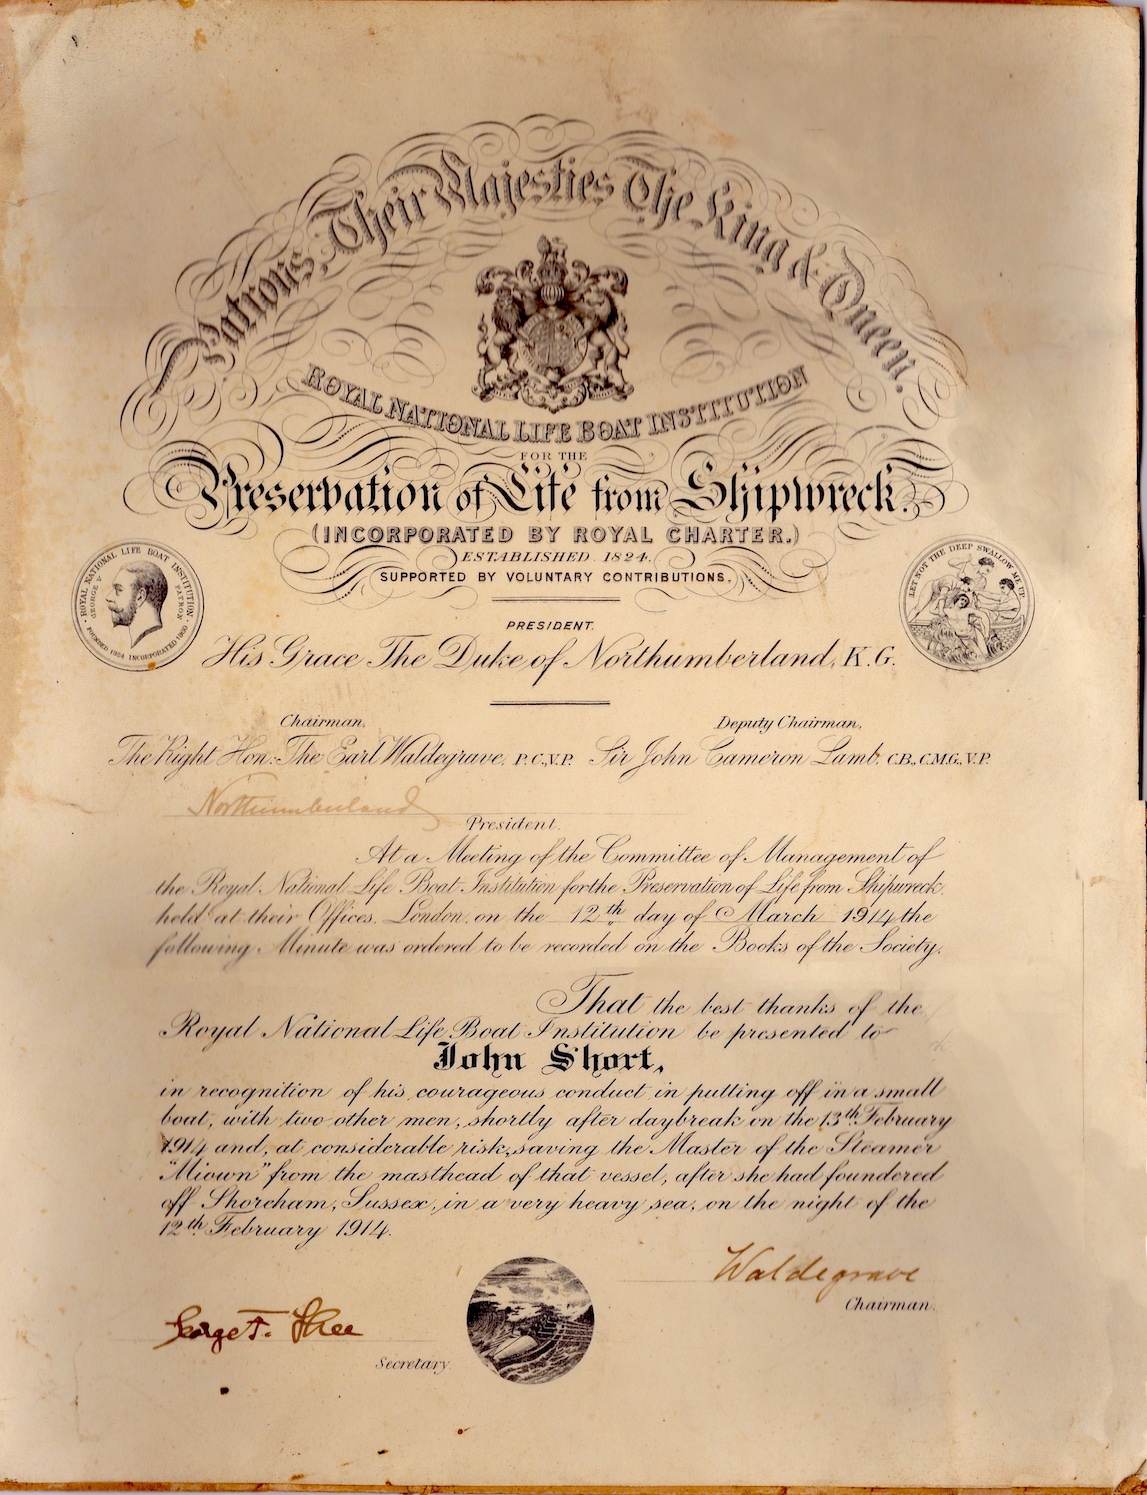 Patrons, Their Majesties The King & Queen.
ROYAL NATIONAL LIFE BOAT INSTITUTION
FOR THE
Preservation of Life from Shipwreck.
(INCORPORATED BY ROYAL CHARTER.)
ESTABLISHED 1824.
SUPPORTED BY VOLUNTARY CONTRIBUTIONS.
ROYAL NATIONAL LIFE BOAT INSTITUTION
GEORGE V PATRON
FOUNDED 1824 INCORPORATED 1860
LET NOT THE DEEP SWALLOW ME UP
PRESIDENT.
His Grace The Duke of Northumberland, K.G.
Chairman,
The Right Hon: The Earl Waldegrave, P.C., V.P.
Deputy Chairman,
Sir John Cameron Lamb, C.B., C.M.G., V.P.
Northumberland
President.
At a Meeting of the Committee of Management of
the Royal National Life Boat Institution for the Preservation of Life from Shipwreck,
held at their Offices, London, on the 12th day of March 1914 the
following Minute was ordered to be recorded on the Books of the Society.
That the best thanks of the
Royal National Life Boat Institution be presented to
John Short,
in recognition of his courageous conduct in putting off in a small
boat, with two other men, shortly after daybreak on the 13th February
1914 and, at considerable risk, saving the Master of the Steamer
"Miown" from the masthead of that vessel, after she had foundered
off Shoreham, Sussex, in a very heavy sea, on the night of the
12th February 1914.
Waldegrave
Chairman.
George F. Shee
Secretary.